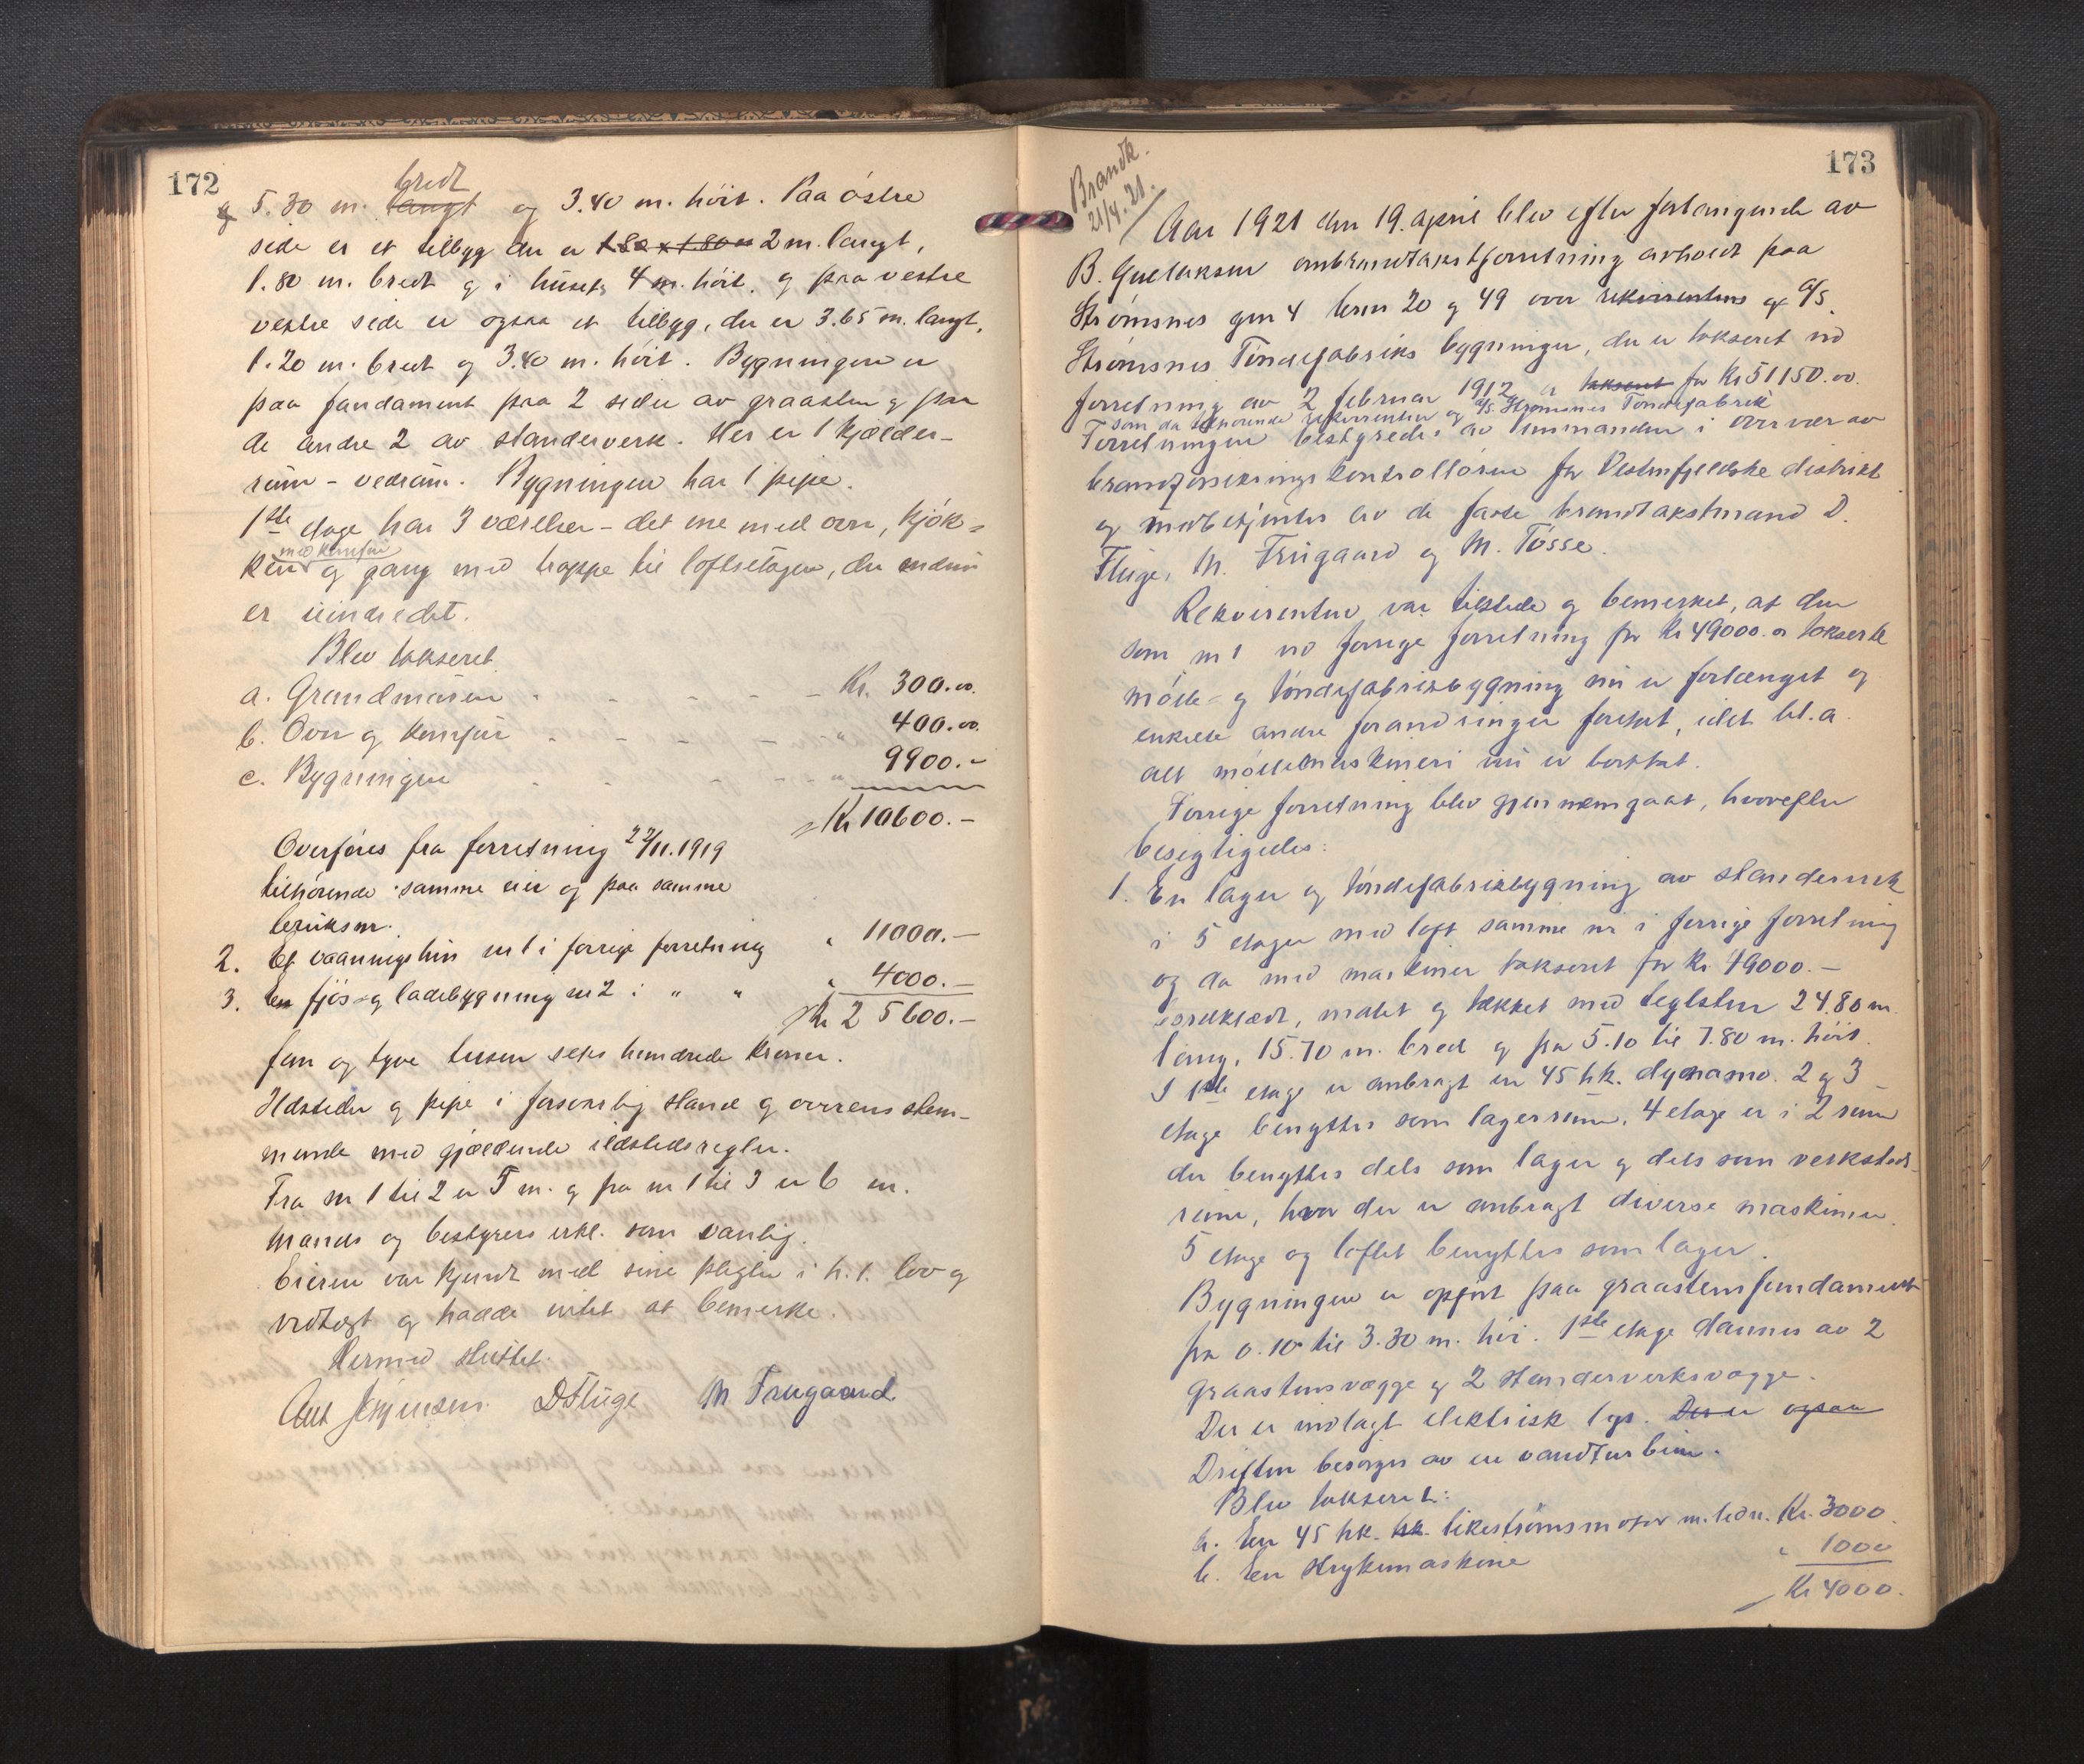 172
bredt
og 5.30 m. langt og 3.40 m. höit. Paa östre
side er et tilbygg der er 1.80 x 1.80 m 2 m. langt,
1.80 m. bredt og i husets 4 m. höit. og paa vestre
vestre side er ogsaa et tilbygg, der er 3.65 m. langt,
1.20 m. bredt og 3.40 m. höit. Bygningen er
paa fundament paa 2 sider av graasten og paa
de andre 2 av standerverk. Her er 1 kjælder-
rum - vedrum. Bygningen har 1 pipe.
1ste etage har 3 værelser - det ene med ovn, kjök-
med komfur
ken og gang med trappe til loftsetagen, der endnu
er uindredet.
Blev takseret
a. Grundmuren Kr. 300.00.
b. Ovn og komfur " 400.00.
c. Bygningen " 9900.-
Kr 10600.-
Overföres fra forretning 22/11.1919
tilhörende samme eier og paa samme
bruksnr.
2. Et vaaningshus nr 1 i forrige forretning " 11000.-
3. En fjös- og ladebygning nr 2 i " " " 4000.-
Kr 25600.-
fem og tyve tusen seks hundrede kroner.
Ildsteder og pipe i forsvarlig stand og overensstem-
mende med gjældende ildstedsregler.
Fra nr 1 til 2 er 5 m. og fra nr 1 til 3 er 6 m.
Mænds og bestyrers erkl. som vanlig.
Eieren var kjendt med sine pligter i h. t. lov og
vedtegt og hadde intet at bemerke.
Hermed sluttet.
Ant Jörgensen. D Fluge M Frugaard.
173
Brandk.
21/4.21.
Aar 1921 den 19. april blev efter forlangende av
B. Gullaksen ombrandtakstforretning avholdt paa
Strömsnes gnr 4 brnr 20 og 49 over rekvirentens og A/S.
Strömsnes Töndefabriks bygninger, der er takseret ved
forretning av 2 februar 1912 er takseret for Kr 51150.00.
som da tilhörende rekvirenten og A/S. Strömsnes Töndefabrik
Forretningen bestyredes av lensmanden i overvær av
brandforsikringskontrollören for Vestenfjeldske distrikt
og medbetjentes av de faste brandtakstmænd D.
Fluge, M. Frugaard og M. Tösse.
Rekvirenten var tilstede og bemerket, at den
som nr 1 ved forrige forretning for Kr 49000.00 takserte
mölle- og töndefabrikbygning nu er forlænget og
enkelte andre forandringer foretat, idet bl.a.
alt möllemaskineri nu er borttat.
Forrige forretning blev gjennemgaat, hvorefter
besigtigedes:
1. En lager og töndefabrikbygning av standerverk
i 5 etager med loft samme nr i forrige forretning
og da med maskiner takseret for Kr 49000.-
bordklædt, malet og tækket med teglsten 24.80 m.
lang, 15.70 m. bred og fra 5.10 til 7.80 m. höit.
I 1ste etage er anbragt en 45 hk. dynamo. 2 og 3
etage benyttes som lagerrum. 4 etage er i 2 rum
der benyttes dels som lager og dels som verksteds-
rum, hvor der er anbragt diverse maskiner.
5 etage og loftet benyttes som lager.
Bygningen er opfört paa graastensfundament
fra 0.10 til 3.30 m. höi. 1ste etage dannes av 2
graastensvægge og 2 standerverksvægge.
Der er indlagt elektrisk lys. Der er ogsaa
Driften besörges av en vandturbin.
Blev takseret:
a. En 45 hk. hk. likeströmsmotor m. ledn. Kr. 3000.
b. En Strykemaskine " 1000
Kr 4000.